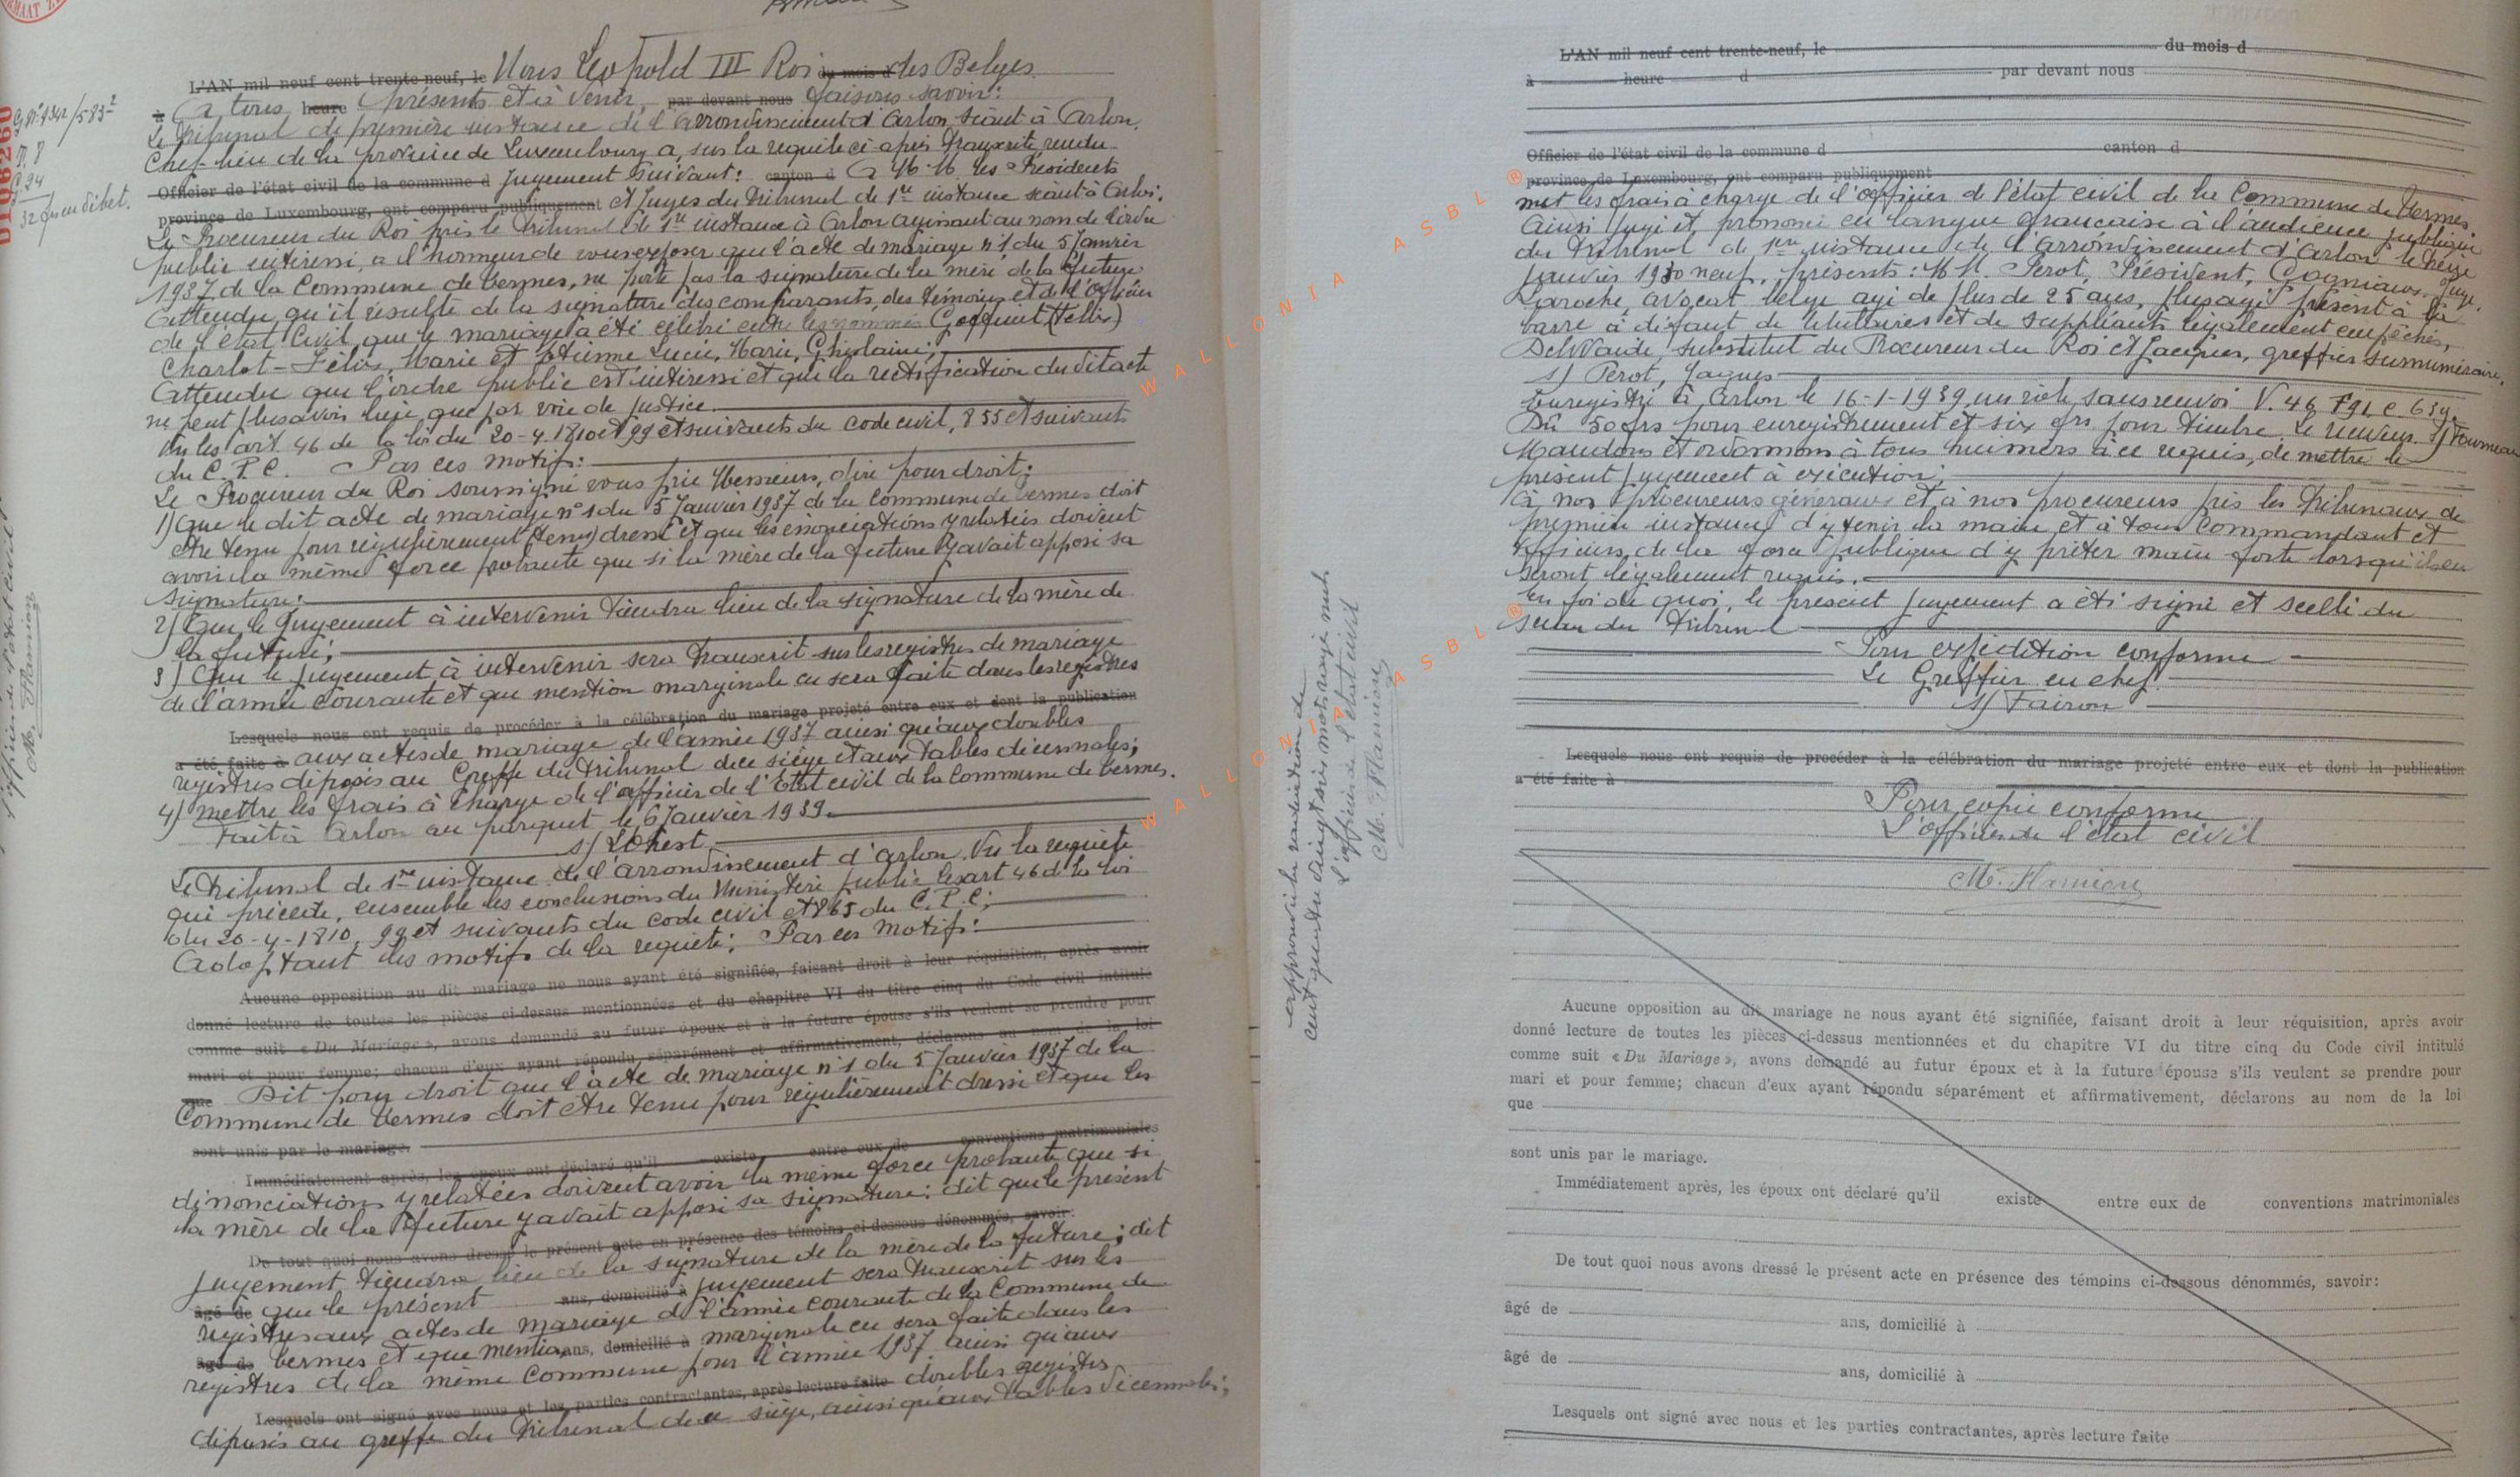 L'AN mil neuf cent trente-neuf, le Nous Léopold III Roi du mois d des Belges
à A tous heure présents et à venir, par devant nous faisons savoir:
Le Tribunal de première instance de l'arrondissement d'Arlon, séant à Arlon,
Chef-lieu de la province de Luxembourg a, sur la requête ci-après transcrite, rendu
Officier de l'état civil de la commune d jugement suivant: canton d A M.M. les Présidents
province de Luxembourg, ont comparu publiquement et Juges du Tribunal de 1re instance séant à Arlon.
Le Procureur du Roi près le Tribunal de 1re instance à Arlon agissant au nom de l'ordre
public intéressé, a l'honneur de vous exposer que l'acte de mariage n°1 du 5 Janvier
1937 de la Commune de Vermes, ne porte pas la signature de la mère de la future
Attendu qu'il résulte de la signature des comparants, des témoins et de l'officier
de l'état civil, que le mariage a été célébré entre les nommés Goffinet (Félix)
Charlot-Félix, Marie et Etienne Lucie, Marie, Ghislaine;
Attendu que l'ordre public est intéressé et que la rectification du dit acte
ne peut plus avoir lieu que par voie de justice.
Vu les art 46 de la loi du 20-4-1810 et 99 et suivants du code civil, 855 et suivants
du C.P.C. Par ces motifs:
Le Procureur du Roi soussigné vous prie Messieurs, dire pour droit:
1) Que le dit acte de mariage n°1 du 5 Janvier 1937 de la Commune de Vermes doit
être tenu pour régulièrement (tenu) dressé et que les énonciations y relatées doivent
avoir la même force probante que si la mère de la future y avait apposé sa
signature:
2) Que le jugement à intervenir tiendra lieu de la signature de la mère de
la future;
3) Que le jugement à intervenir sera transcrit sur les registres de mariage
de l'année courante et que mention marginale en sera faite dans les registres
Lesquels nous ont requis de procéder à la célébration du mariage projeté entre eux et dont la publication
a été faite à aux actes de mariage de l'année 1937 ainsi qu'aux doubles
registres déposés au Greffe du Tribunal de ce siège et aux tables décennales;
4) mettre les frais à charge de l'officier de l'Etat civil de la Commune de Vermes.
Fait à Arlon au parquet, le 6 Janvier 1939.
s/ Lohest
Le Tribunal de 1re instance de l'arrondissement d'Arlon. Vu la requête
qui précède, ensemble les conclusions du Ministère public les art 46 de la loi
du 20-4-1810, 99 et suivants du code civil et 865 du C.P.C;
Adoptant les motifs de la requête; Par ces motifs:
Aucune opposition au dit mariage ne nous ayant été signifiée, faisant droit à leur réquisition, après avoir
donné lecture de toutes les pièces ci-dessus mentionnées et du chapitre VI du titre cinq du Code civil intitulé
comme suit « Du Mariage », avons demandé au futur époux et à la future épouse s'ils veulent se prendre pour
mari et pour femme; chacun d'eux ayant répondu séparément et affirmativement, déclarons au nom de la loi
que Dit pour droit que l'acte de mariage n°1 du 5 Janvier 1937 de la
Commune de Vermes doit être tenu pour régulièrement dressé et que les
sont unis par le mariage.
Immédiatement après, les époux ont déclaré qu'il existe entre eux de conventions matrimoniales
dénonciations y relatées doivent avoir la même force probante que si
la mère de la future y avait apposé sa signature; dit que le présent
De tout quoi nous avons dressé le présent acte en présence des témoins ci-dessous dénommés, savoir:
jugement tiendra lieu de la signature de la mère de la future; dit
âgé de que le présent ans, domicilié à jugement sera transcrit sur les
registres aux actes de mariage de l'année courante de la Commune de
âgé de Vermes et que mention ans, domicilié à marginale en sera faite dans les
registres de la même Commune pour l'année 1937 ainsi qu'aux
Lesquels ont signé avec nous et les parties contractantes, après lecture faite doubles registres
déposés au greffe du Tribunal de ce siège, ainsi qu'aux tables décennales;
D106260
32 frs en débet.
l'officier de l'état civil
M. Flamion
L'AN mil neuf cent trente-neuf, le du mois d
à heure d par devant nous
Officier de l'état civil de la commune d canton d
province de Luxembourg, ont comparu publiquement
met les frais à charge de l'officier de l'état civil de la Commune de Vermes.
Ainsi jugé et prononcé en langue française à l'audience publique
du Tribunal de 1ère instance de l'arrondissement d'Arlon le treize
janvier 1930 neuf, présents: M.M. Perot, Président, Cogniaux, juge,
Laroche, avocat belge agé de plus de 25 ans, plus agé présent à la
barre à défaut de titulaires et de suppléants légalement empêchés,
Delvaide, substitut du Procureur du Roi et Jacques, greffier surnuméraire.
s/ Perot, Jacques
Enregistré à Arlon le 16-1-1939 un rôle sans renvoi V. 46 F91 C 639.
Dû 50 frs pour enregistrement et six frs pour timbre. Le receveur s/ Tourneur
Mandons et ordonnons à tous huissiers à ce requis, de mettre le
présent jugement à exécution;
à nos procureurs généraux et à nos procureurs près les Tribunaux de
première instance d'y tenir la main et à tous Commandant et
officiers de la force publique d'y prêter main forte lorsqu'ils en
seront légalement requis.
En foi de quoi, le présent jugement a été signé et scellé du
sceau du Tribunal
Pour expédition conforme
Le Greffier en chef
s/ Fairon
Lesquels nous ont requis de procéder à la célébration du mariage projeté entre eux et dont la publication
a été faite à
Pour copie conforme
L'officier de l'état civil
M. Flamion
Aucune opposition au dit mariage ne nous ayant été signifiée, faisant droit à leur réquisition, après avoir
donné lecture de toutes les pièces ci-dessus mentionnées et du chapitre VI du titre cinq du Code civil intitulé
comme suit « Du Mariage », avons demandé au futur époux et à la future épouse s'ils veulent se prendre pour
mari et pour femme; chacun d'eux ayant répondu séparément et affirmativement, déclarons au nom de la loi
que
sont unis par le mariage.
Immédiatement après, les époux ont déclaré qu'il existe entre eux de conventions matrimoniales
De tout quoi nous avons dressé le présent acte en présence des témoins ci-dessous dénommés, savoir:
âgé de
ans, domicilié à
âgé de
ans, domicilié à
Lesquels ont signé avec nous et les parties contractantes, après lecture faite
approuvé la radiation de
cent quarante vingt six mots rayés nuls
L'officier de l'état civil
M. Flamion
WALLONIA ASBL®
WALLONIA ASBL®